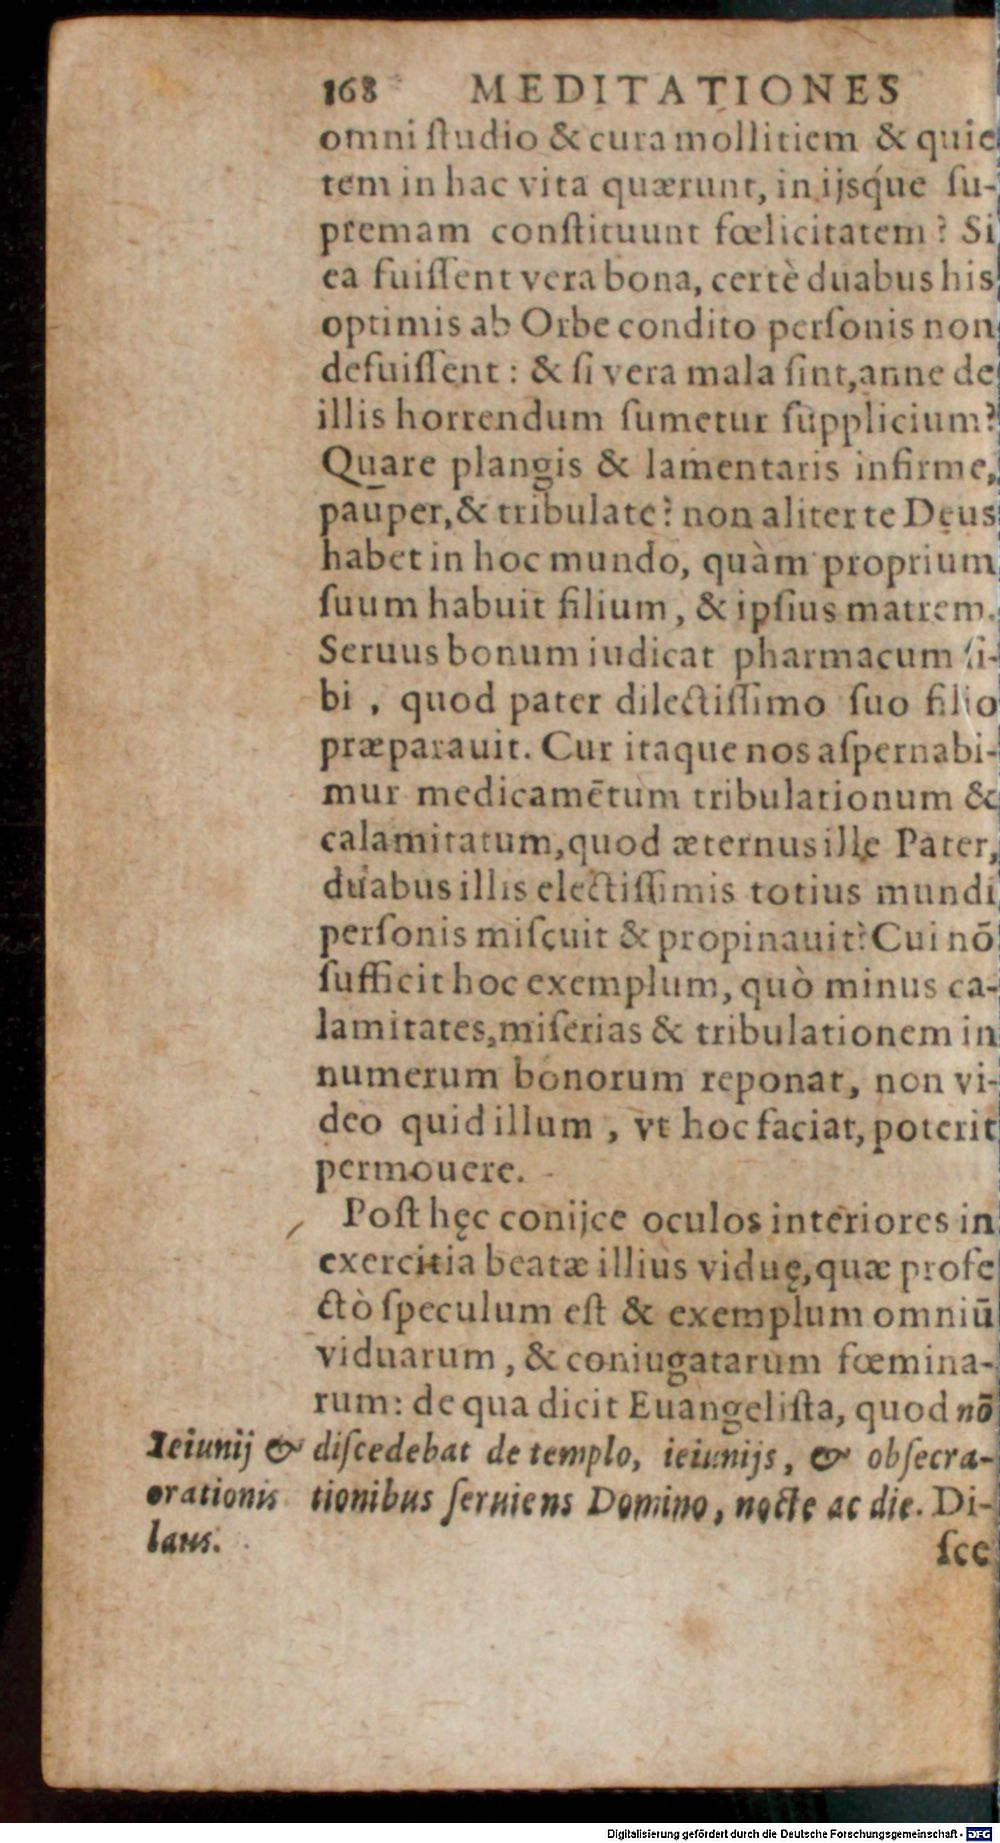 168 MEDITATIONES
omni ſtudio & cura mollitiem & quie
tem in hac vita quærunt, in ijsq́ue ſu-
premam conſtituunt fœlicitatem? Si
ea fuiſſent vera bona, certè duabus his
optimis ab Orbe condito perſonis non
defuiſſent: & ſi vera mala ſint, anne de
illis horrendum ſumetur ſupplicium?
Quare plangis & lamentaris infirme,
pauper, & tribulate? non aliter te Deus
habet in hoc mundo, quàm proprium
ſuum habuit filium, & ipſius matrem.
Seruus bonum iudicat pharmacum ſi-
bi, quod pater dilectiſſimo ſuo filio
præparauit. Cur itaque nos aſpernabi-
mur medicamētum tribulationum &
calamitatum, quod æternus ille Pater,
duabus illis electiſſimis totius mundi
perſonis miſcuit & propinauit? Cui nō
ſufficit hoc exemplum, quò minus ca-
lamitates, miſerias & tribulationem in
numerum bonorum reponat, non vi-
deo quid illum, vt hoc faciat, poterit
permouere.
Poſt hęc conijce oculos interiores in
exercitia beatæ illius viduę, quæ profe
ctò ſpeculum eſt & exemplum omniū
viduarum, & coniugatarum fœmina-
rum: de qua dicit Euangeliſta, quod nō
Ieiunij & diſcedebat de templo, ieiunijs, & obſecra-
orationis tionibus ſeruiens Domino, nocte ac die. Di-
laus. ſce
Digitalisierung gefördert durch die Deutsche Forschungsgemeinschaft - DFG